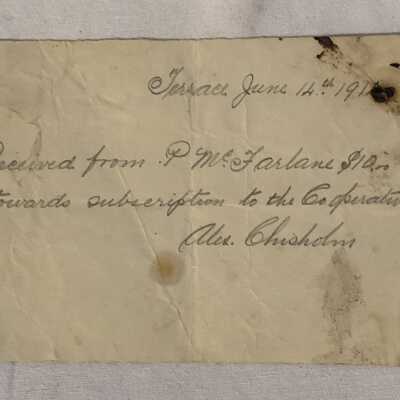 Terrace June 14th 191
Received from P McFarlane $10
towards subscription to the Cooperative
Alex. Chisholm